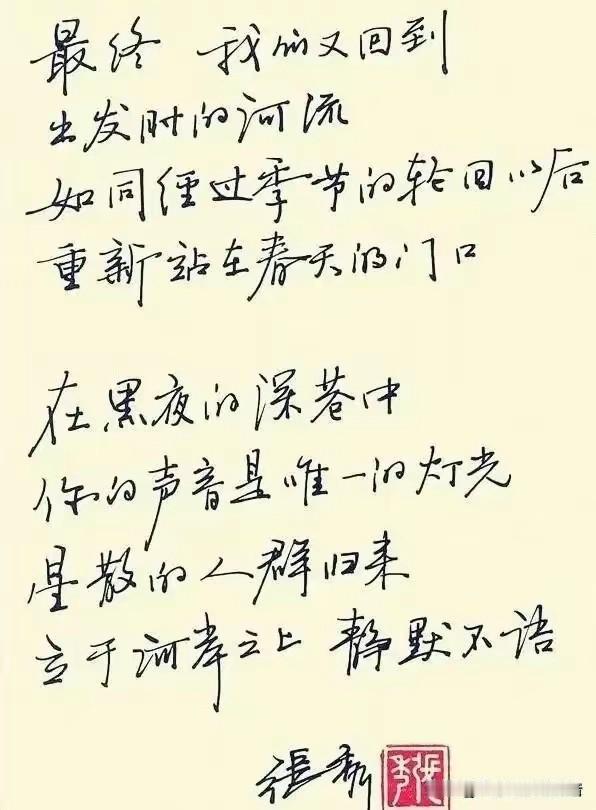 最终 我们又回到
出发时的河流
如同经过季节的轮回以后
重新站在春天的门口
在黑夜的深巷中
你的声音是唯一的灯光
星散的人群归来
立于河岸之上 静默不语